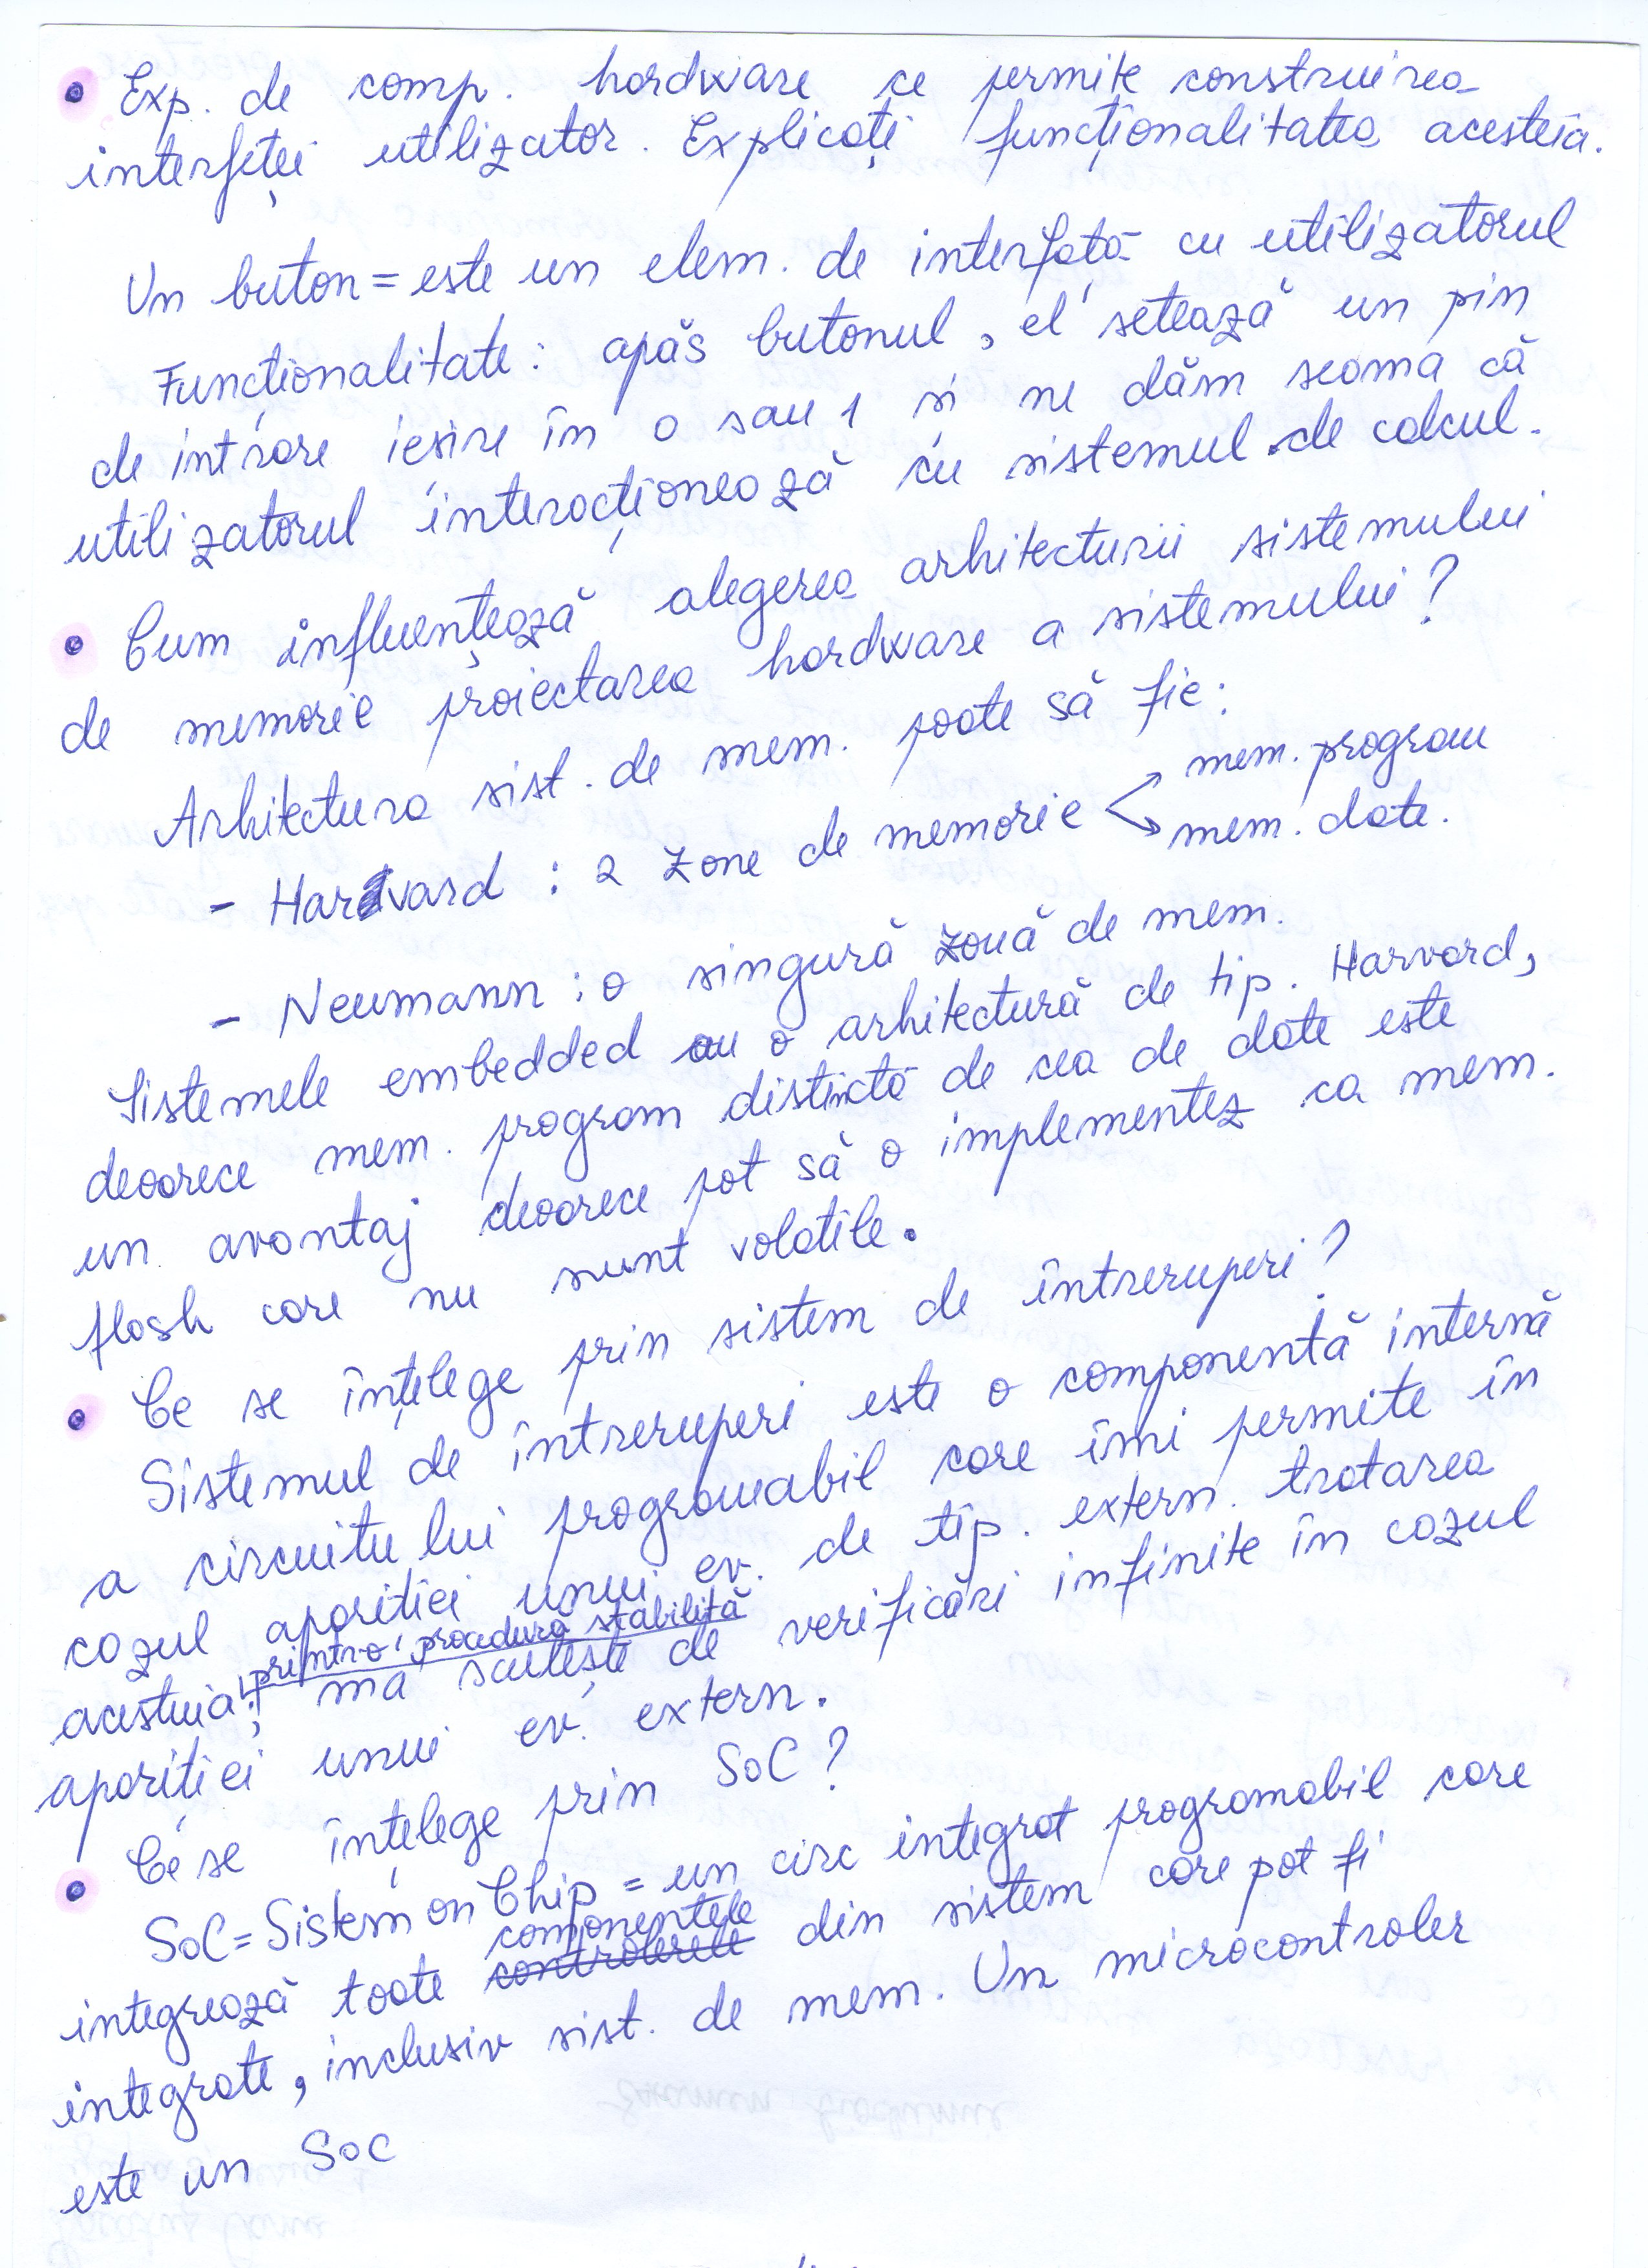 • Exp. de comp. hardware ce permite construirea
interfeței utilizator. Explicați funcționalitatea acesteia.
Un buton = este un elem. de interfață cu utilizatorul
Funcționalitate: apăs butonul, el setează un pin
de intrare ieșire în 0 sau 1 și ne dăm seama că
utilizatorul interacționează cu sistemul de calcul.
• Cum influențează alegerea arhitecturii sistemului
de memorie proiectarea hardware a sistemului?
Arhitectura sist. de mem. poate să fie:
- Harvard : 2 zone de memorie < mem. program
mem. date.
- Neumann : o singură zonă de mem.
Sistemele embedded au o arhitectură de tip. Harvard,
deoarece mem. program distinctă de cea de date este
un avantaj deoarece pot să o implementez ca mem.
flash care nu sunt volatile.
• Ce se înțelege prin sistem de întreruperi?
Sistemul de întreruperi este o componentă internă
a circuitului programabil care îmi permite în
cazul apariției unui ev. de tip. extern tratarea
printr-o procedură stabilită
acestuia; mă scutește de verificări infinite în cazul
apariției unui ev. extern.
• Ce se înțelege prin SoC?
SoC = Sistem on Chip = un circ integrat programabil care
integrează toate controlerele componentele din sistem care pot fi
integrate, inclusiv sist. de mem. Un microcontroler
este un SoC